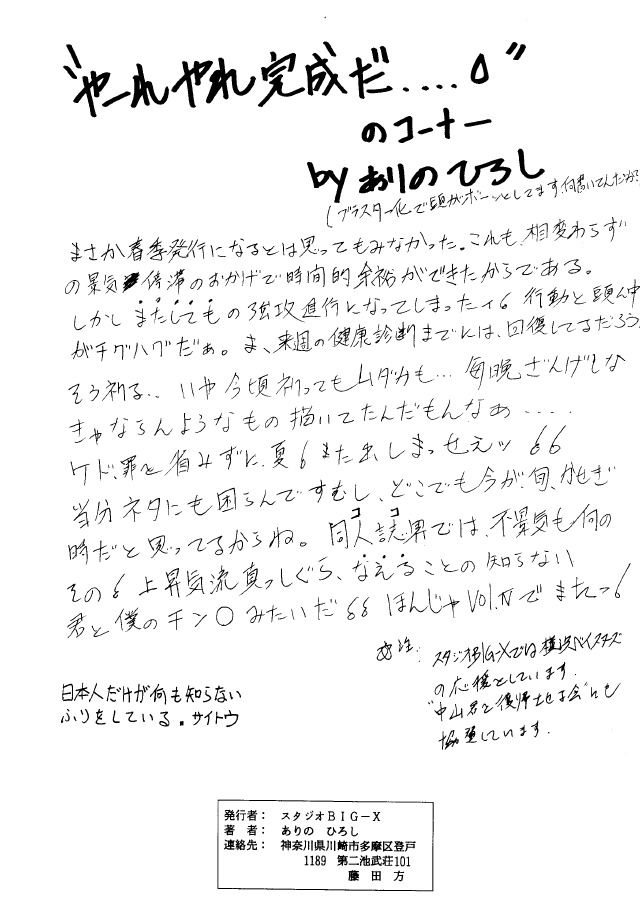 “やーれやれ完成だ....”
のコーナー
by ありのひろし
(ブラスター化で頭がボーッとしてます、何書いてんだか?
まさか春季発行になるとは思ってもみなかった。これも、相変わらず
の景気停滞のおかげで時間的余裕ができたからである。
しかしまたしてもの強攻進行になってしまったィ6 行動と頭ん中
がチグハグだぁ。ま、来週の健康診断までには、回復してるだろう
そう祈る.. いや今頃祈ってもムダかも… 毎晩ざんげしな
きゃならんようなもの描いてたんだもんなぁ.....
ケド、罪を省みずに、夏6また出しまっせぇッ 66
当分ネタにも困らんですむし、どこでも今が旬、かせぎ
時だと思ってるからね。同人誌界では、不景気も何の
ココ
その6 上昇気流真っしぐら、なえることの知らない
君と僕のチン〇みたいだ66 ほんじゃVol.Ⅳでまたっ6
スタジオBIG-Xでは横浜ベイスターズ
の応援をしています。
“中山君を復帰させる会”にも
協賛しています.
日本人だけが何も知らない
ふりをしている。サイトウ
発行者: スタジオBIG-X
著 者: ありの ひろし
連絡先: 神奈川県川崎市多摩区登戸
1189 第二池武荘101
藤 田 方